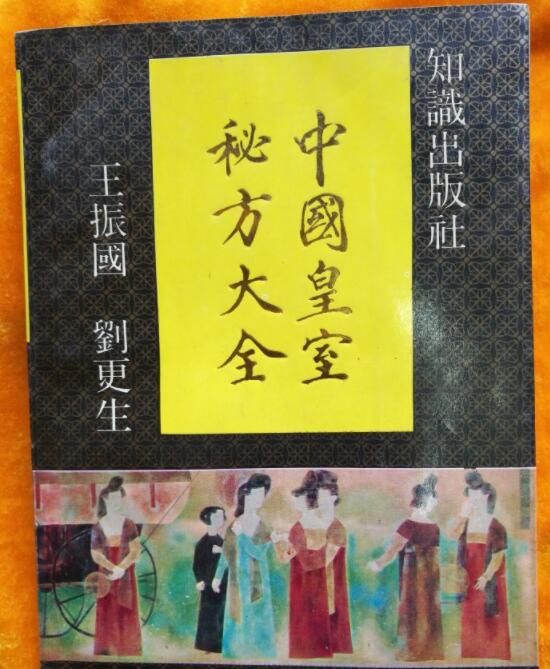 知識出版社
中國皇室
秘方大全
王振國 劉更生